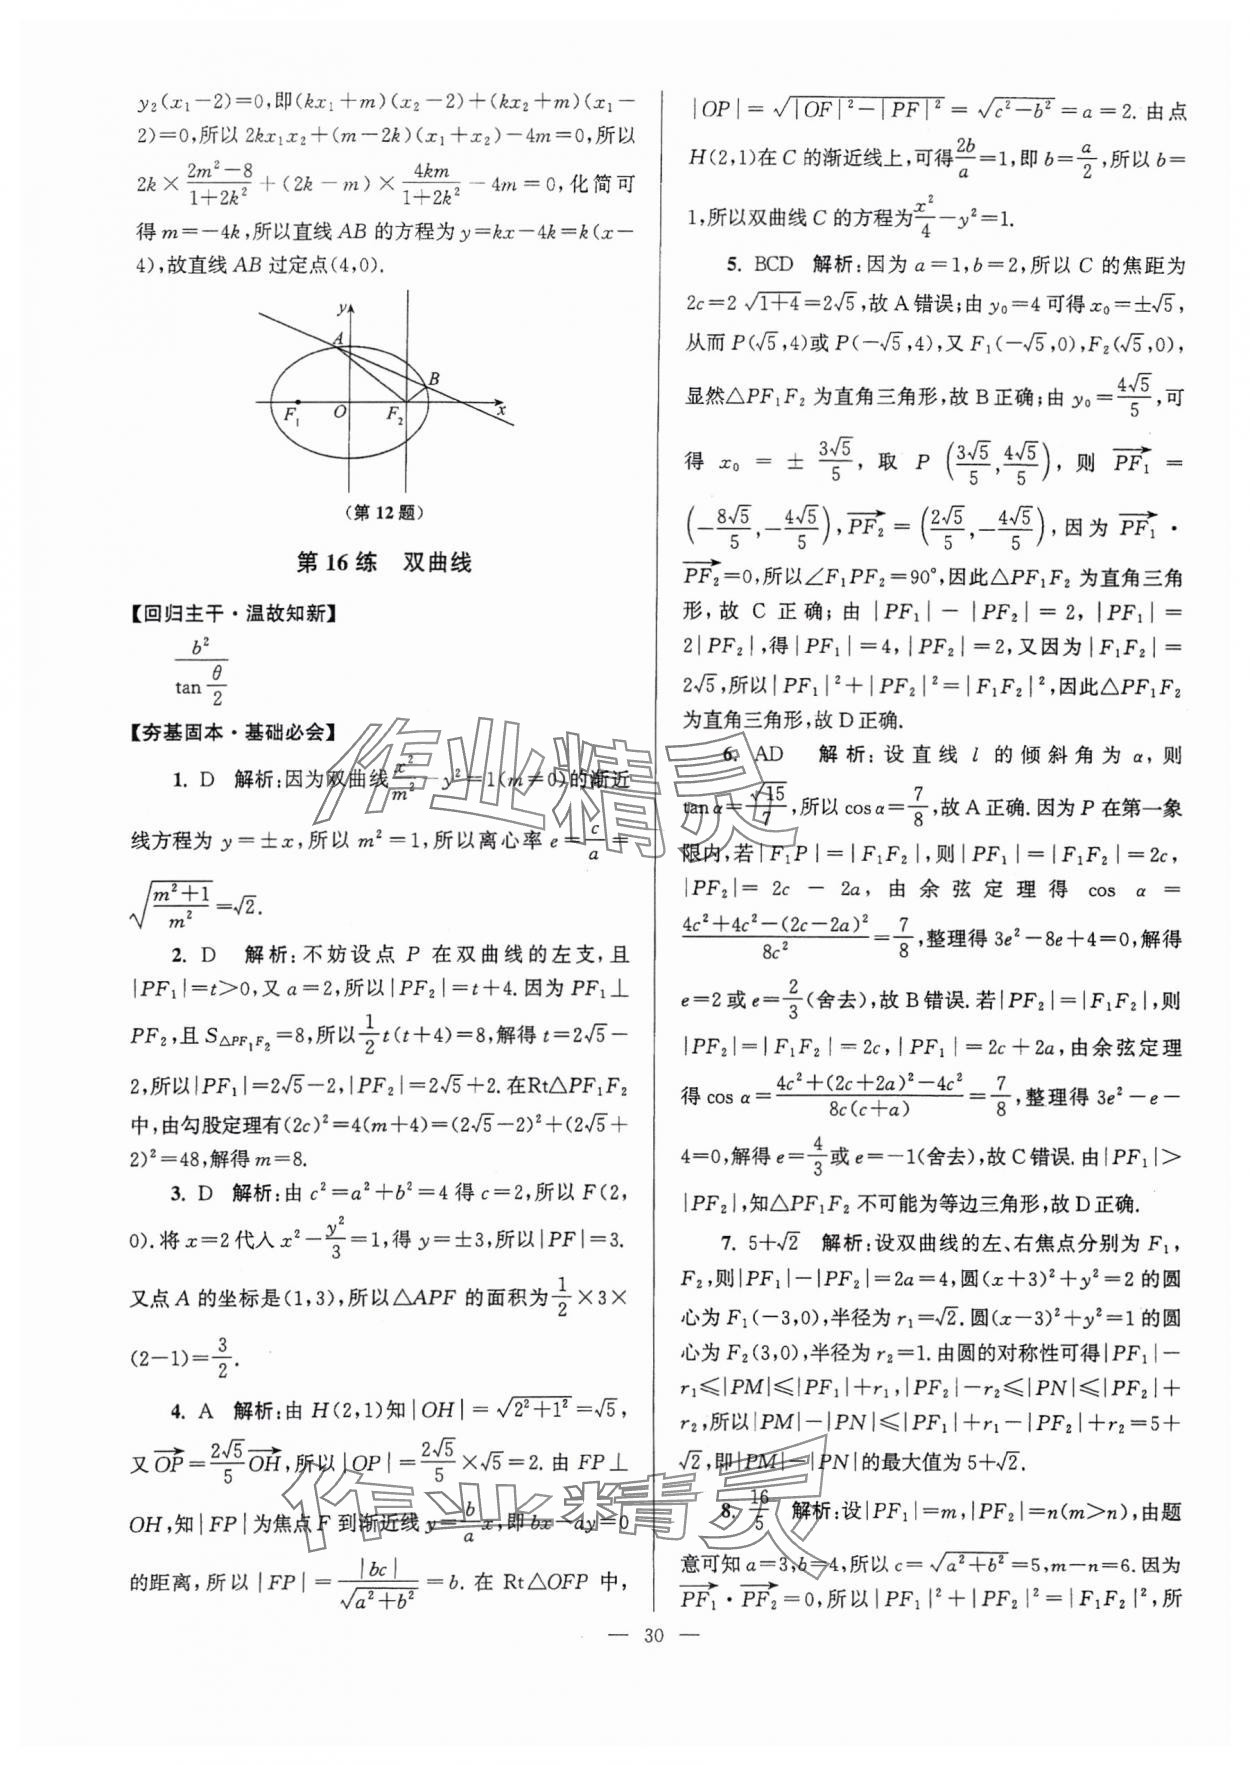 y₂(x₁-2)=0,即(kx₁+m)(x₂-2)+(kx₂+m)(x₁-
2)=0,所以 2kx₁x₂+(m-2k)(x₁+x₂)-4m=0,所以
2k×(2m²-8)/(1+2k²)+(2k-m)×4km/(1+2k²)-4m=0,化简可
得 m=-4k,所以直线 AB 的方程为 y=kx-4k=k(x-
4),故直线 AB 过定点(4,0).
y
A
B
F₁
O
F₂
x
(第 12 题)
第 16 练 双曲线
【回归主干·温故知新】
b²/tan(θ/2)
【夯基固本·基础必会】
1. D 解析:因为双曲线x²/m²-y²=1(m≠0)的渐近
线方程为 y=±x,所以 m²=1,所以离心率 e=c/a=
√((m²+1)/m²)=√2.
2. D 解析:不妨设点 P 在双曲线的左支,且
|PF₁|=t>0,又 a=2,所以|PF₂|=t+4.因为 PF₁⊥
PF₂,且 S△PF₁F₂=8,所以1/2t(t+4)=8,解得 t=2√5-
2,所以|PF₁|=2√5-2,|PF₂|=2√5+2.在Rt△PF₁F₂
中,由勾股定理有(2c)²=4(m+4)=(2√5-2)²+(2√5+
2)²=48,解得 m=8.
3. D 解析:由 c²=a²+b²=4 得 c=2,所以 F(2,
0).将 x=2 代入 x²-y²/3=1,得 y=±3,所以|PF|=3.
又点 A 的坐标是(1,3),所以△APF 的面积为1/2×3×
(2-1)=3/2.
4. A 解析:由 H(2,1)知|OH|=√(2²+1²)=√5,
又OP→=2√5/5 OH→,所以|OP|=2√5/5×√5=2.由 FP⊥
OH,知|FP|为焦点 F 到渐近线 y=b/a x,即 bx-ay=0
的距离,所以|FP|=|bc|/√(a²+b²)=b.在 Rt△OFP 中,
|OP|=√(|OF|²-|PF|²)=√(c²-b²)=a=2.由点
H(2,1)在 C 的渐近线上,可得2b/a=1,即 b=a/2,所以 b=
1,所以双曲线 C 的方程为x²/4-y²=1.
5. BCD 解析:因为 a=1,b=2,所以 C 的焦距为
2c=2√(1+4)=2√5,故 A 错误;由 y₀=4 可得 x₀=±√5,
从而 P(√5,4)或 P(-√5,4),又 F₁(-√5,0),F₂(√5,0),
显然△PF₁F₂ 为直角三角形,故 B 正确;由 y₀=4√5/5,可
得 x₀=±3√5/5,取 P(3√5/5,4√5/5),则 PF₁→=
(-8√5/5,-4√5/5),PF₂→=(2√5/5,-4√5/5),因为 PF₁→·
PF₂→=0,所以∠F₁PF₂=90°,因此△PF₁F₂ 为直角三角
形,故 C 正确;由|PF₁|-|PF₂|=2,|PF₁|=
2|PF₂|,得|PF₁|=4,|PF₂|=2,又因为|F₁F₂|=
2√5,所以|PF₁|²+|PF₂|²=|F₁F₂|²,因此△PF₁F₂
为直角三角形,故 D 正确.
6. AD 解析:设直线 l 的倾斜角为 α,则
tan α=√15/7,所以 cos α=7/8,故 A 正确.因为 P 在第一象
限内,若|F₁P|=|F₁F₂|,则|PF₁|=|F₁F₂|=2c,
|PF₂|=2c-2a,由余弦定理得 cos α=
(4c²+4c²-(2c-2a)²)/8c²=7/8,整理得 3e²-8e+4=0,解得
e=2 或 e=2/3(舍去),故 B 错误.若|PF₂|=|F₁F₂|,则
|PF₂|=|F₁F₂|=2c,|PF₁|=2c+2a,由余弦定理
得 cos α=(4c²+(2c+2a)²-4c²)/8c(c+a)=7/8,整理得 3e²-e-
4=0,解得 e=4/3或 e=-1(舍去),故 C 错误.由|PF₁|>
|PF₂|,知△PF₁F₂ 不可能为等边三角形,故 D 正确.
7. 5+√2 解析:设双曲线的左、右焦点分别为 F₁,
F₂,则|PF₁|-|PF₂|=2a=4,圆(x+3)²+y²=2 的圆
心为 F₁(-3,0),半径为 r₁=√2.圆(x-3)²+y²=1 的圆
心为 F₂(3,0),半径为 r₂=1.由圆的对称性可得|PF₁|-
r₁≤|PM|≤|PF₁|+r₁,|PF₂|-r₂≤|PN|≤|PF₂|+
r₂,所以|PM|-|PN|≤|PF₁|+r₁-|PF₂|+r₂=5+
√2,即|PM|-|PN|的最大值为 5+√2.
8. 16/5 解析:设|PF₁|=m,|PF₂|=n(m>n),由题
意可知 a=3,b=4,所以 c=√(a²+b²)=5,m-n=6.因为
PF₁→·PF₂→=0,所以|PF₁|²+|PF₂|²=|F₁F₂|²,所
— 30 —
作业精灵
作业精灵